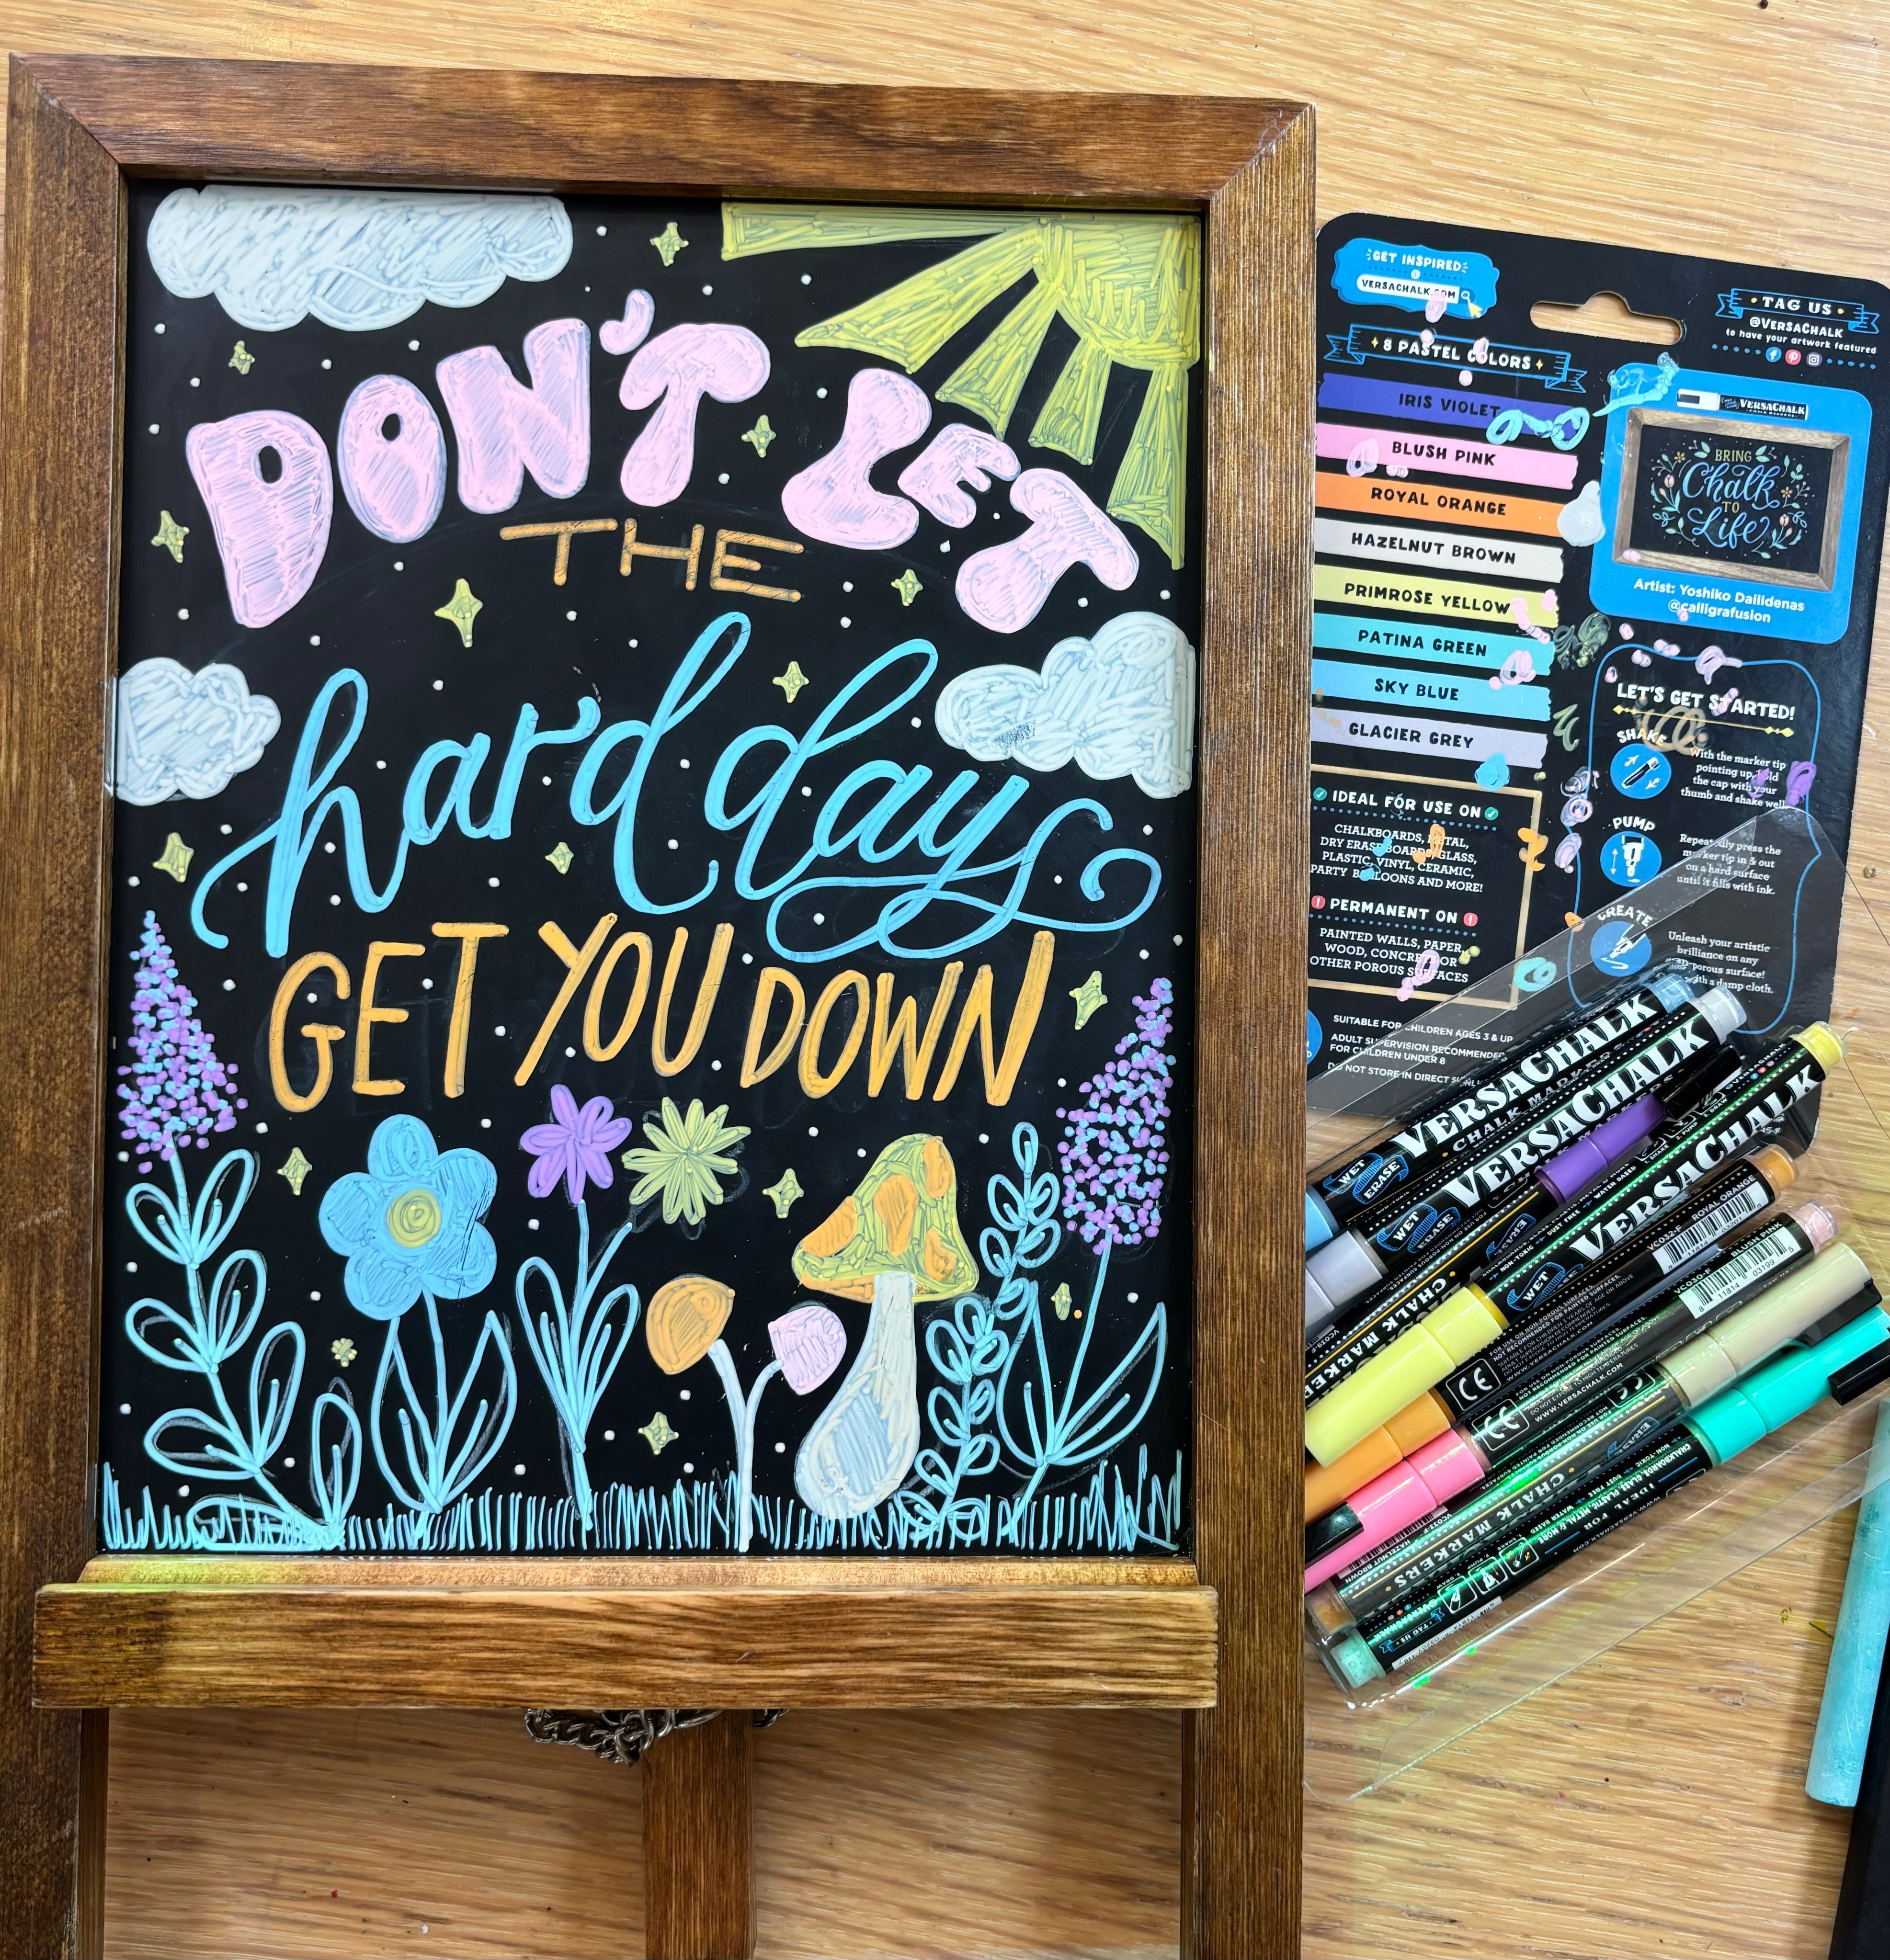 DON'T LET
THE
hard days
GET YOU DOWN
GET INSPIRED
VERSACHALK.COM
TAG US
@VERSACHALK
to have your artwork featured
8 PASTEL COLORS
IRIS VIOLET
BLUSH PINK
ROYAL ORANGE
HAZELNUT BROWN
PRIMROSE YELLOW
PATINA GREEN
SKY BLUE
GLACIER GREY
VERSACHALK
BRING
Chalk
TO
Life
Artist: Yoshiko Dailidenas
@calligrafusion
IDEAL FOR USE ON
CHALKBOARDS, METAL,
DRY ERASE BOARDS, GLASS,
PLASTIC, VINYL, CERAMIC,
PARTY BALLOONS AND MORE!
PERMANENT ON
PAINTED WALLS, PAPER,
WOOD, CONCRETE OR
OTHER POROUS SURFACES
LET'S GET STARTED!
SHAKE
With the marker tip
pointing up, hold
the cap with your
thumb and shake well.
PUMP
Repeatedly press the
marker tip in & out
on a hard surface
until it fills with ink.
CREATE
Unleash your artistic
brilliance on any
non-porous surface!
with a damp cloth.
SUITABLE FOR CHILDREN AGES 3 & UP
ADULT SUPERVISION RECOMMENDED
FOR CHILDREN UNDER 8
DO NOT STORE IN DIRECT
VERSACHALK
CHALK MARKERS
WET
ERASE
VERSACHALK
WET
ERASE
VERSACHALK
WET
ERASE
CHALK MARKERS
VC032-F ROYAL ORANGE
VC030-F BLUSH PINK
8 11814 03199 5
CE
CE
WWW.VERSACHALK.COM
VC033-F HAZELNUT BROWN
CHALK MARKERS
IDEAL FOR
TAG US